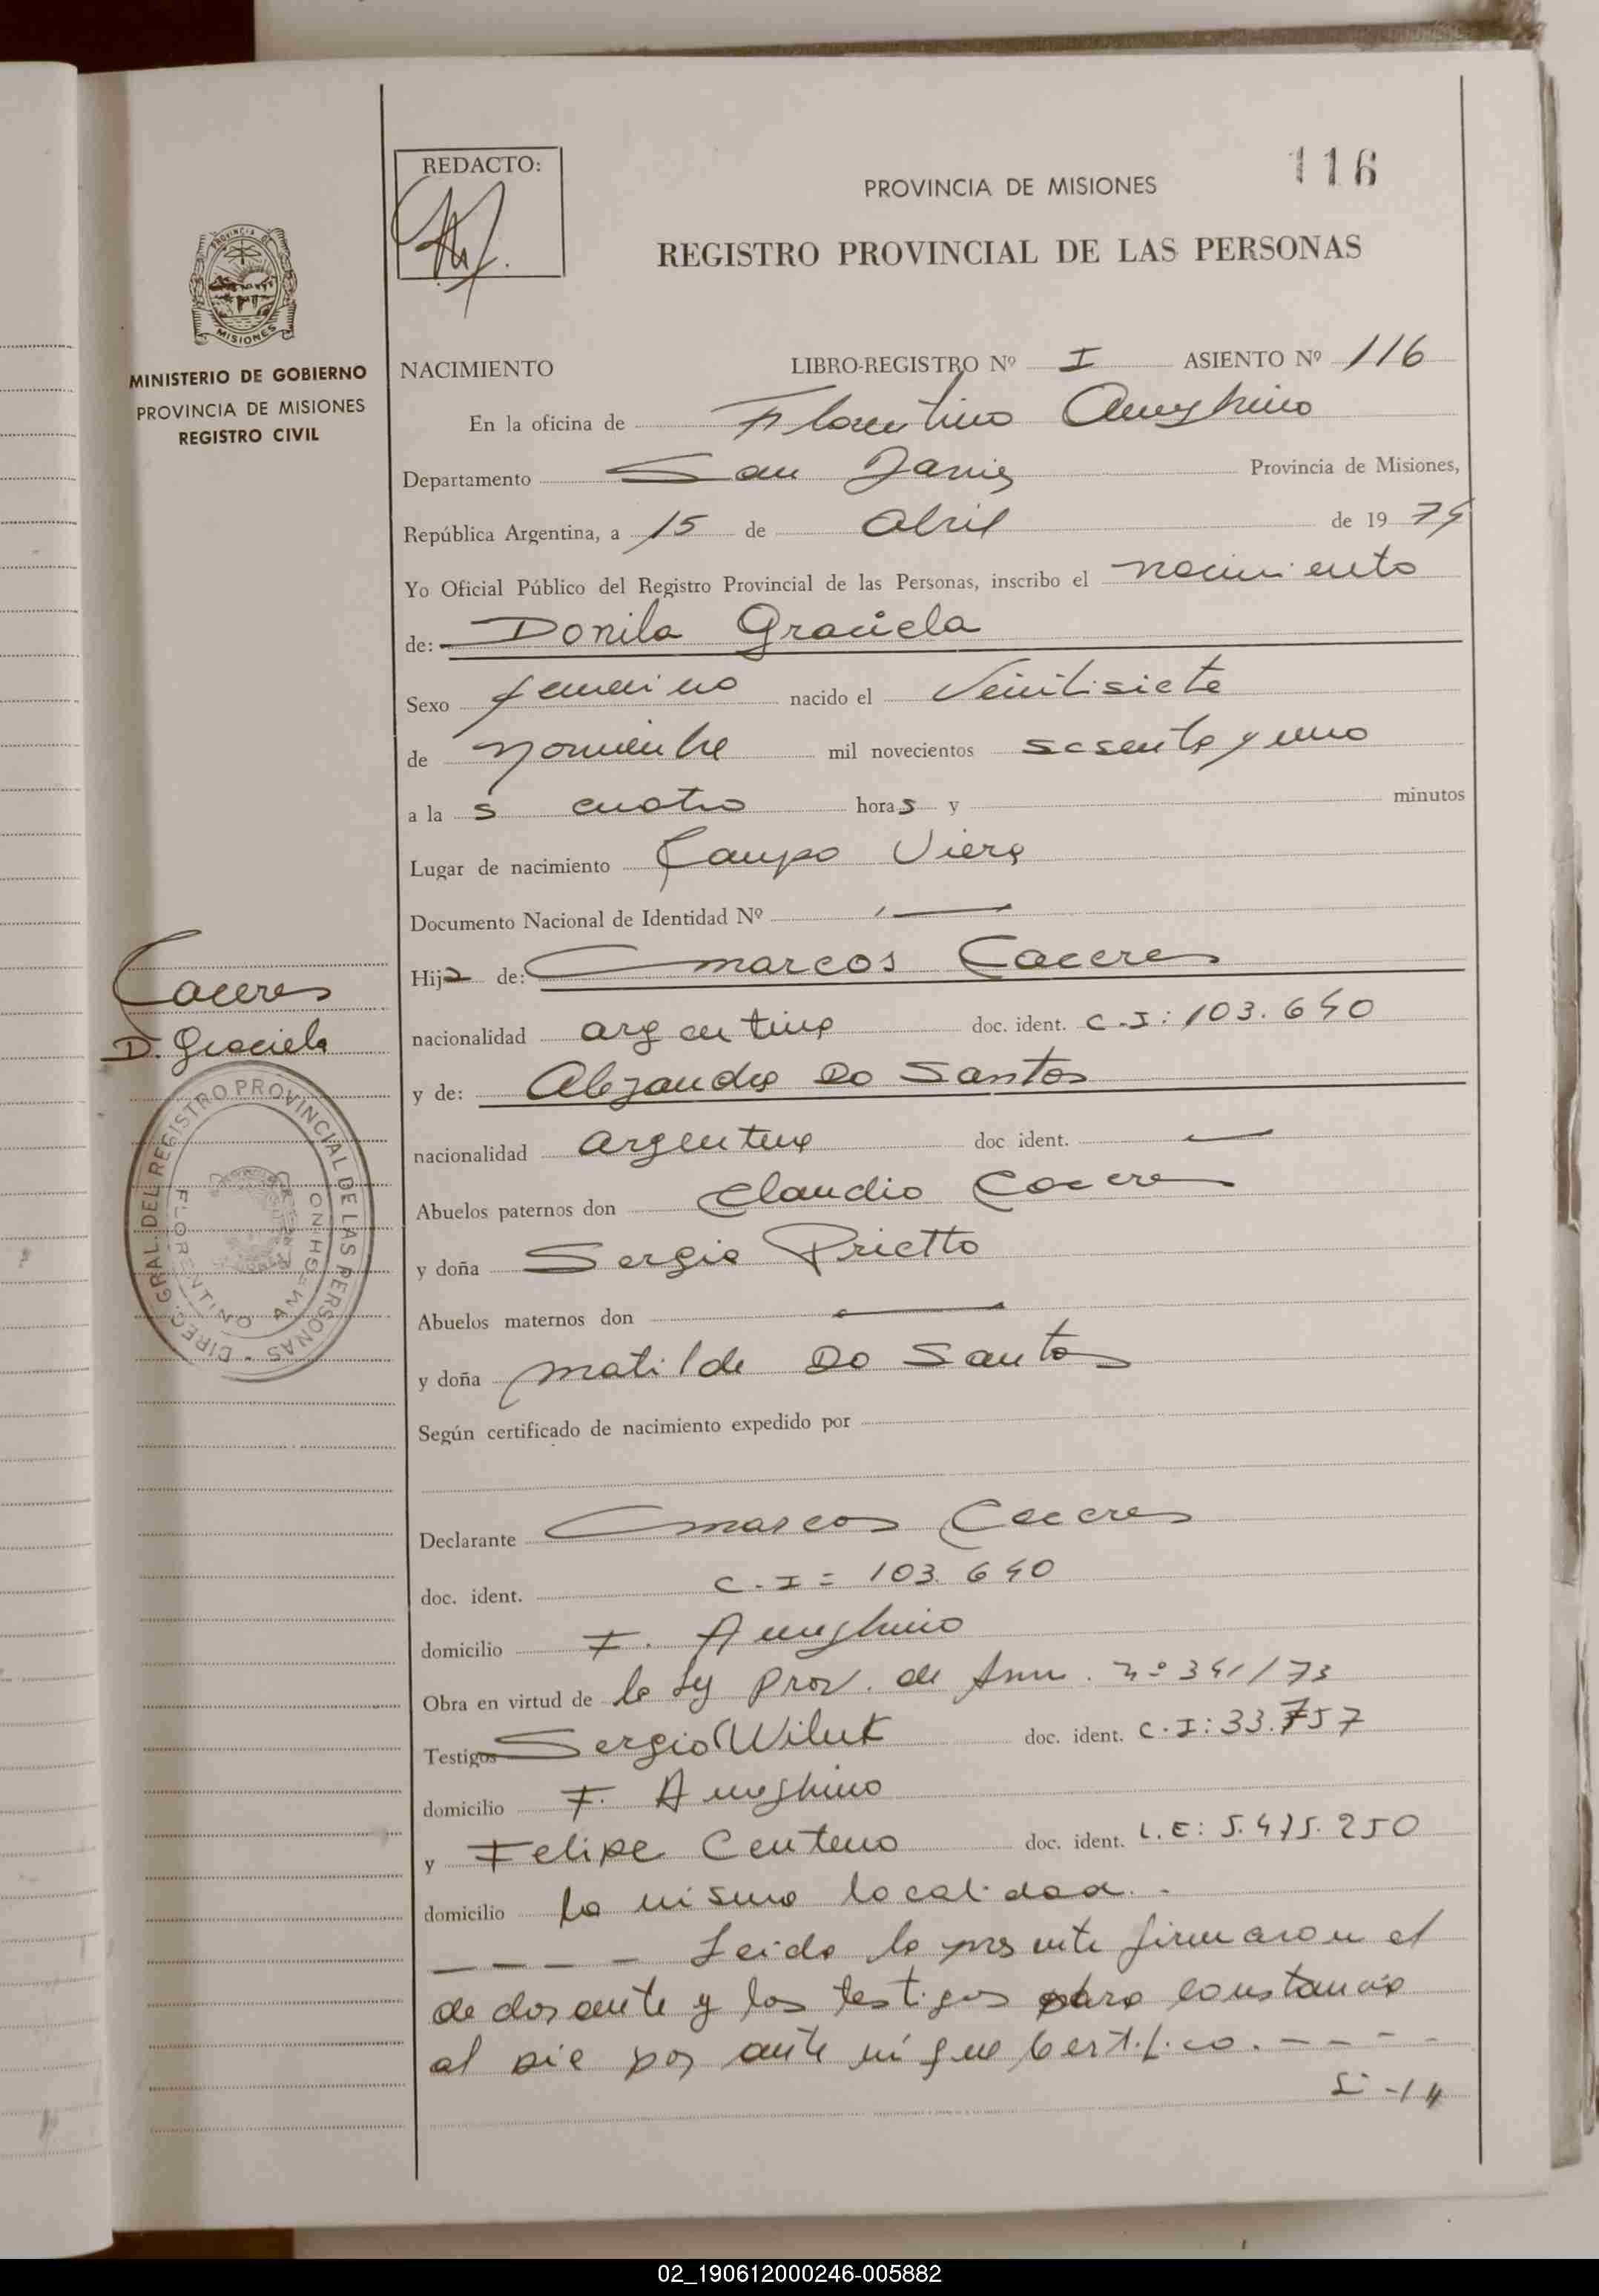 REDACTO:
116
PROVINCIA DE MISIONES
REGISTRO PROVINCIAL DE LAS PERSONAS
PROVINCIA DE
MISIONES
MINISTERIO DE GOBIERNO
PROVINCIA DE MISIONES
REGISTRO CIVIL
NACIMIENTO LIBRO-REGISTRO Nº I ASIENTO Nº 116
En la oficina de Florentino Ameghino
Departamento San Javier Provincia de Misiones,
República Argentina, a 15 de Abril de 19 74
Yo Oficial Público del Registro Provincial de las Personas, inscribo el nacimiento
de: Donila Graciela
Sexo femenino nacido el Veintisiete
de noviembre mil novecientos sesenta y uno
a la s cuatro horas y minutos
Lugar de nacimiento Campo Viera
Documento Nacional de Identidad Nº —
Hija de: Marcos Caceres
nacionalidad argentina doc. ident. C.I: 103.640
y de: Alejandra Do Santos
nacionalidad argentina doc ident. —
Abuelos paternos don Claudio Caceres
y doña Sergia Prietto
Abuelos maternos don —
y doña Matilde Do Santos
Según certificado de nacimiento expedido por
Declarante Marcos Caceres
doc. ident. C.I = 103.640
domicilio F. Ameghino
Obra en virtud de la Ley Prov. de Amn. nº 341/73
Testigos Sergio Wiluk doc. ident. C.I: 33.757
domicilio F. Ameghino
y Felipe Centeno doc. ident. L.E: 5.475.250
domicilio la misma localidad.-
---- Leida la presente firmaron el
declarante y los testigos para constancia
al pie por ante mí que Certifico. ----
Caceres
D. Graciela
DIREC. GRAL. DEL REGISTRO PROVINCIAL DE LAS PERSONAS
FLORENTINO AMEGHINO
02_190612000246-005882